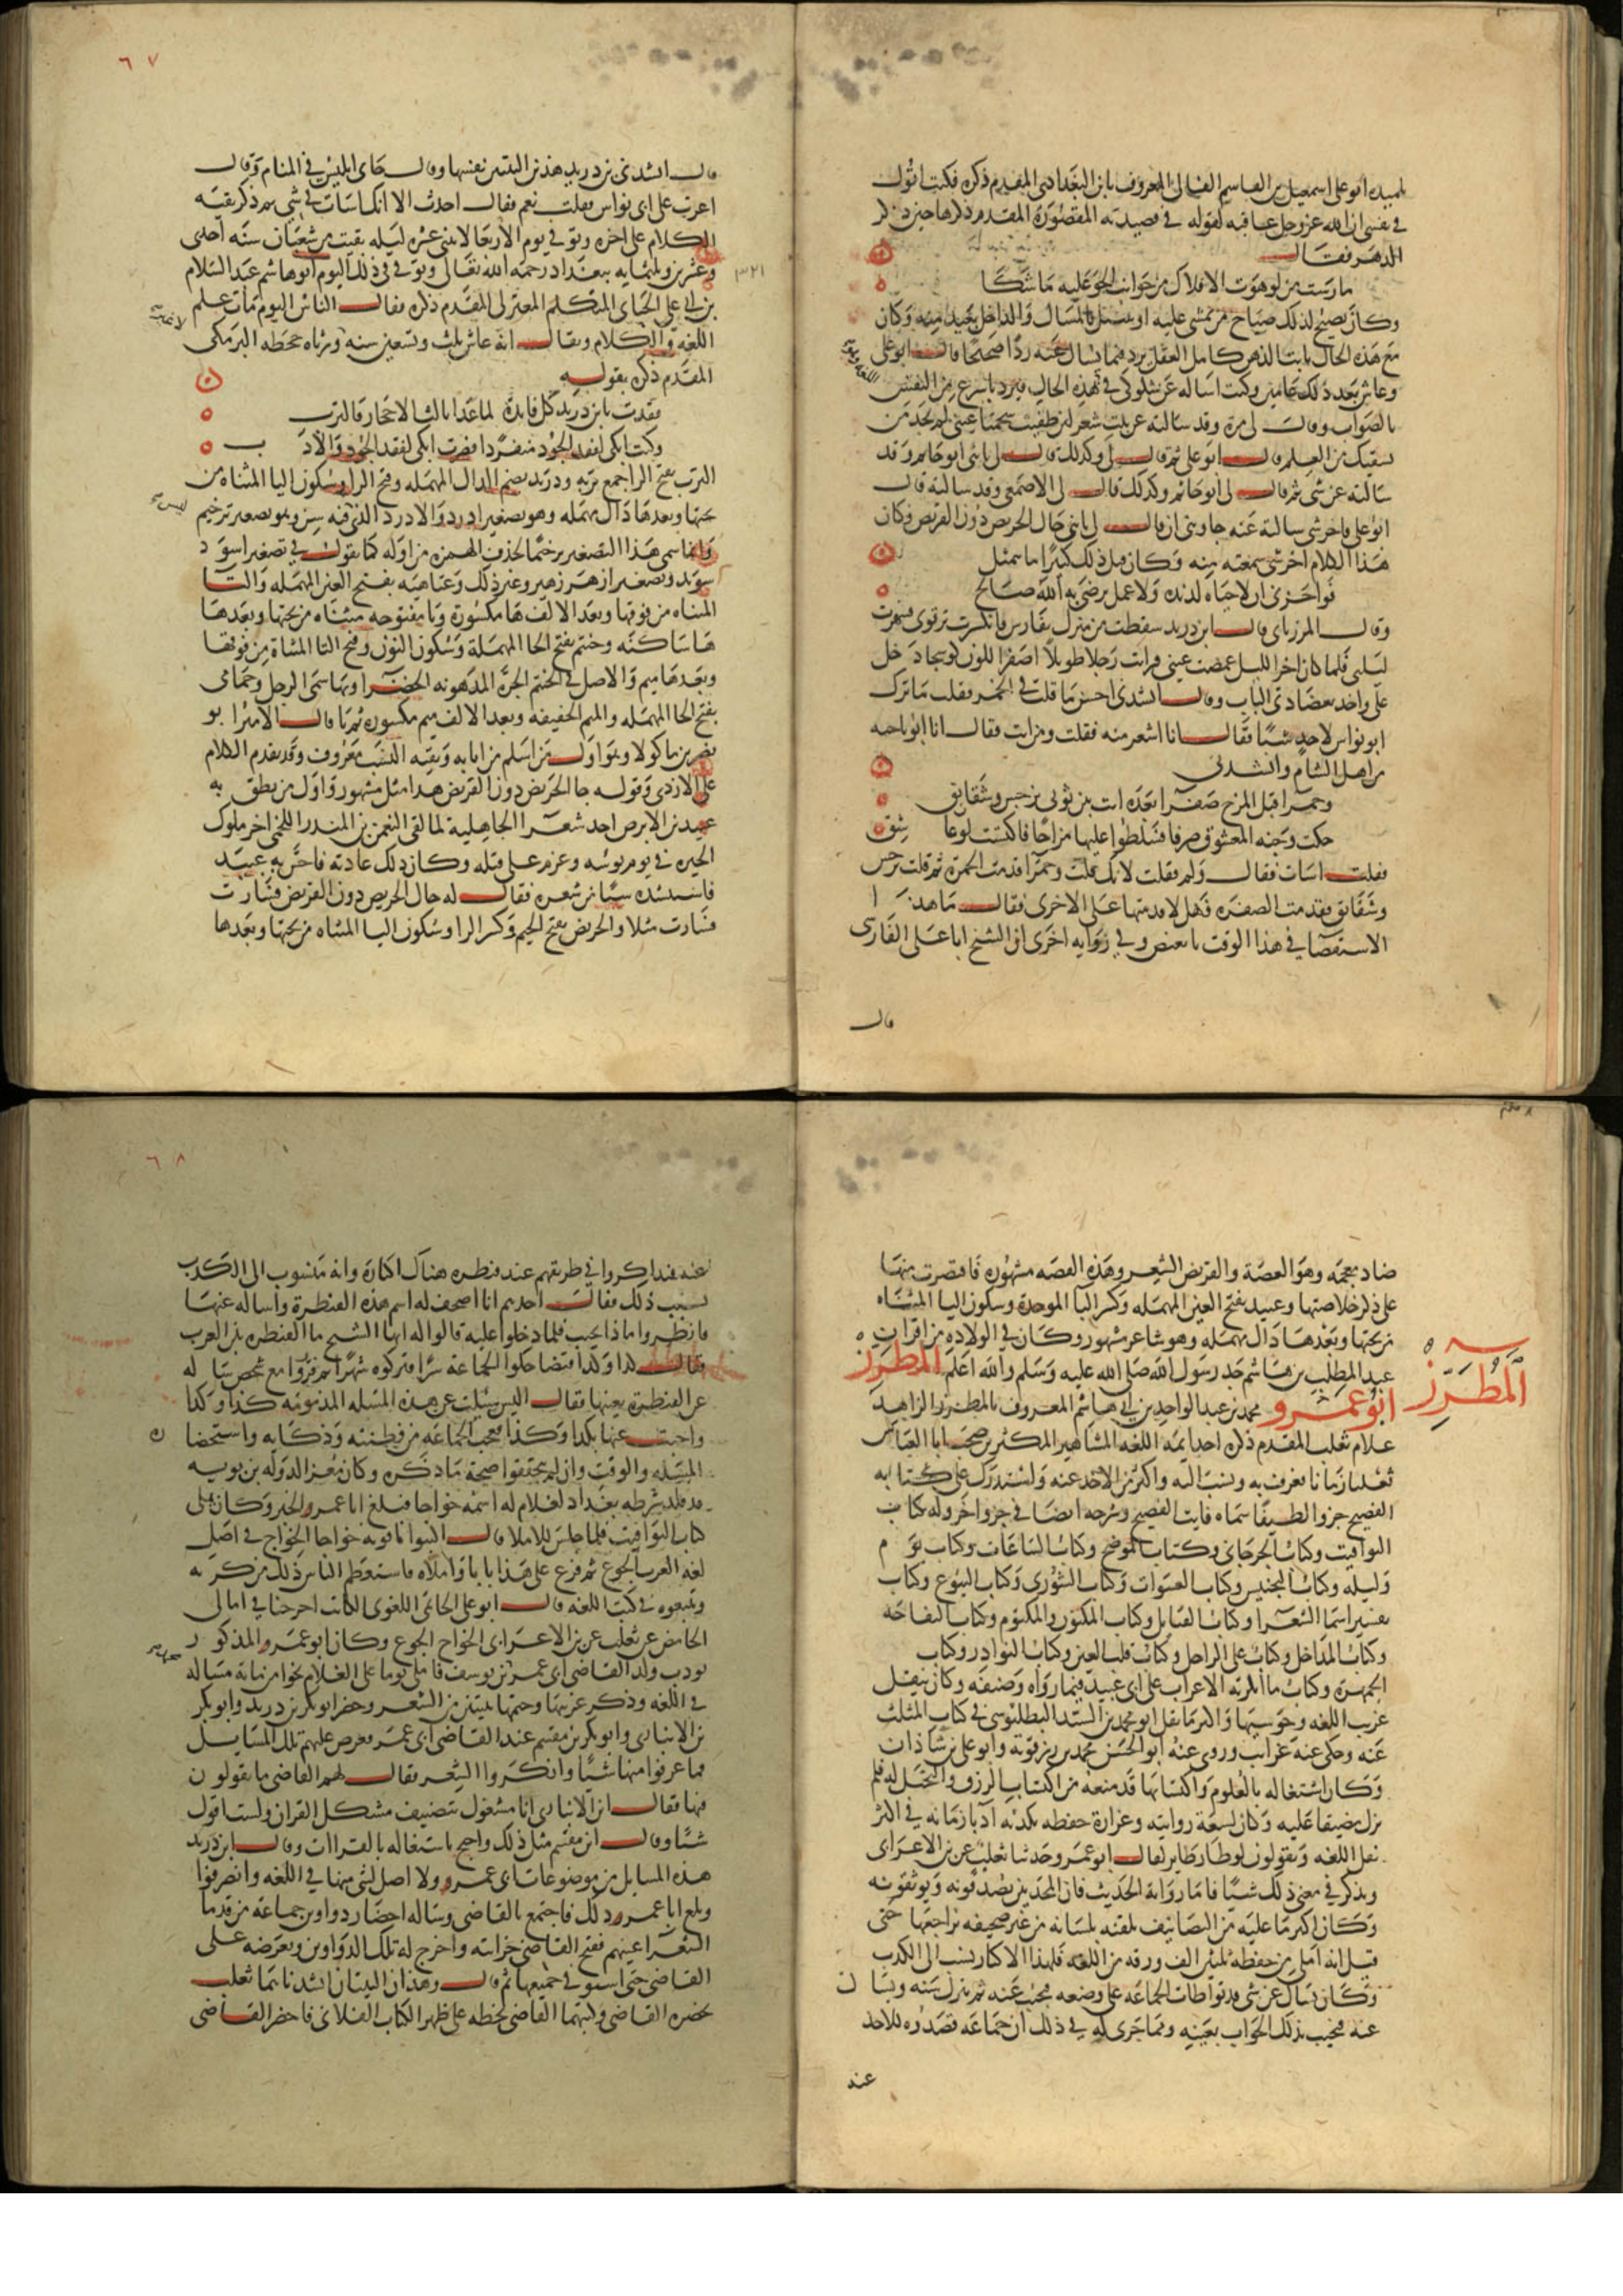 تلميذه ابو علي اسمعيل بن القاسم القالي المعروف بابن البغدادي المقدم ذكره فكنت اقول
في نفسي ان الله عز وجل عاقبه لقوله في قصيدته المقصورة المقدم ذكرها حين ذكر
الدهر فقال
مارست من لو هوت الافلاك من جوانب الجو عليه ما شكا
وكان يصيح لذلك صياح من يمشي عليه او يسل بالمسال والداخل بعيد منه وكان
مع هذه الحال ثابت الذهن كامل العقل يرد فيما يسال عنه ردا صحيحا قال ابو علي
وعاش بعد ذلك عامين وكنت اساله عن شكوكي في هذه الحال فيرد باسرع من النفس
بالصواب وقال لي مرة وقد سالته عن بيت شعر لئن طفيت شحمتا عيني لم تجد من
يشفيك من العلم قال ابو علي ثم قال لي وكذلك قال لي ابو حاتم وقد
سالته عن شي ثم قال لي ابو حاتم وكذلك قال لي الاصمعي وقد سالته قال
ابو علي واخر شي سالته عنه جاوبني ان قال لي يا بني حال الجريض دون القريض وكان
هذا الكلام اخر شي سمعته منه وكان قبل ذلك كثيرا ما يتمثل
فواحزني ان لا حياة لذيذة ولا عمل يرضى به الله صالح
وقال المرزباني قال ابن دريد سقطت من منزلي بفارس فانكسرت ترقوتي فسهرت
ليلتي فلما كان اخر الليل غمضت عيني فرايت رجلا طويلا اصفر اللون كوسجا دخل
علي واخذ بعضادتي الباب وقال انشدني احسن ما قلت في الخمر فقلت ما ترك
ابو نواس لاحد شيا فقال انا اشعر منه فقلت ومن انت فقال انا ابو ناجيه
من اهل الشام وانشدني
وحمرا قبل المزج صفرا بعده اتت بين ثوبي نرجس وشقائق
حكت وجنة المعشوق صرفا فسلطوا عليها مزاجا فاكتست لون عاشق
فقلت اسات فقال ولم فقلت لانك قلت وحمرا فقدمت الحمرة ثم قلت نرجس
وشقائق فقدمت الصفره فهل لا قدمتها على الاخرى فقال ما هذا
الاستقصا في هذا الوقت يا بغيض وفي رواية اخرى ان الشيخ ابا علي الفارسي
قال
٦٧
قال انشدني بن دريد هذين البيتين لنفسه وقال جاني ابليس في المنام وقال
اغرت على ابي نواس فقلت نعم فقال اجدت الا انك اسات في شي ثم ذكر بقية
الكلام على اخره وتوفي يوم الاربعا لاثنتي عشرة ليلة بقيت من شعبان سنة احدى
وعشرين وثلثمايه ببغداد رحمه الله تعالى وتوفي في ذلك اليوم ابو هاشم عبد السلام
٣٢١
بن ابي علي الجباي المتكلم المعتزلي المقدم ذكره فقال الناس اليوم مات علم
اللغه والكلام ويقال انه عاش ثلث وتسعين سنه ورثاه جحظه البرمكي
المقدم ذكره بقوله
فقدت بابن دريد كل فايدة لما غدا ثالث الاحجار والترب
وكنت ابكي لفقد الجود منفردا فصرت ابكي لفقد الجود والادب
الترب بفتح الرا جمع تربه ودريد بضم الدال المهمله وفتح الرا وسكون اليا المثناه من
تحتها وبعدها دال مهمله وهو تصغير ادرد والادرد الذي فيه سن وهو تصغير ترخيم
وانما سمي هذا التصغير ترخيما لحذف الهمزه من اوله كما تقول في تصغير اسود
سويد وتصغير ازهر زهير وغير ذلك وعتاهيه بفتح العين المهمله والتا
المثناه من فوقها وبعد الالف ها مكسورة ويا مفتوحه مثناه من تحتها وبعدها
ها ساكنه وحنتم بفتح الحا المهملة وسكون النون وفتح التا المثناة من فوقها
وبعدها ميم والاصل في الحنتم الجرة المدهونه الخضرا وبها سمي الرجل وحمامي
بفتح الحا المهمله والميم الخفيفه وبعد الالف ميم مكسورة ثم يا قال الامير ابو
نصر بن ماكولا وهو اول من اسلم من ابايه وبقيه النسب معروف وقد تقدم الكلام
على الازدي وقوله حال الجريض دون القريض هذا مثل مشهور واول من نطق به
عبيد بن الابرص احد شعرا الجاهلية لما لقي النعمن بن المنذر اللخمي اخر ملوك
الحيره في يوم بوسه وعزم على قتله وكان ذلك عادته فاحس به عبيد
فاستنشده شيا من شعره فقال له حال الجريض دون القريض فسارت
فسارت مثلا والجريض بفتح الجيم وكسر الرا وسكون اليا المثناه من تحتها وبعدها
ضاد معجمه وهو الغصة والقريض الشعر وهذه القصه مشهورة فاقتصرت منها
على ذكر خلاصتها وعبيد بفتح العين المهمله وكسر البا الموحدة وسكون اليا المثناه
من تحتها وبعدها دال مهمله وهو شاعر مشهور وكان في الولادة من اقران
عبد المطلب بن هاشم جد رسول الله صلى الله عليه وسلم والله اعلم المطرز
المطرز
ابو عمرو محمد بن عبد الواحد بن ابي هاشم المعروف بالمطرز الزاهد
غلام ثعلب المقدم ذكره احد ايمه اللغه المشاهير المكثرين صحب ابا العباس
ثعلبا زمانا فعرف به ونسب اليه واكثر من الاخذ عنه واستدرك على كتابه
الفصيح جزوا لطيفا سماه فايت الفصيح وشرحه ايضا في جزو اخر وله كتاب
اليواقيت وكتاب الجرجاني وكتاب الموضح وكتاب الساعات وكتاب يوم
وليله وكتاب المستحسن وكتاب العشرات وكتاب الشورى وكتاب البيوع وكتاب
تفسير اسما الشعرا وكتاب القبايل وكتاب المكنون والمكتوم وكتاب التفاحه
وكتاب المداخل وكتاب على الراحل وكتاب فايت العين وكتاب النوادر وكتاب
الجمهرة وكتاب ما انكرته الاعراب على ابي عبيد فيما رواه وصنفه وكان ينقل
غريب اللغه وحوشيها واكثر ما نقل ابو محمد بن السيد البطليوسي في كتاب المثلث
عنه وحكى عنه غرايب وروى عنه ابو الحسن محمد بن رزقوية وابو علي بن شاذان
وكان اشتغاله بالعلوم واكتسابها قد منعه من اكتساب الرزق والتحيل له فلم
يزل مضيقا عليه وكان لسعة روايته وغزارة حفظه يكذبه ادبا زمانه في اكثر
نقل اللغه ويقولون لو طار طاير لقال ابو عمر وحدثنا ثعلب عن بن الاعرابي
ويذكر في معنى ذلك شيا فاما رواية الحديث فان المحدثين يصدقونه ويوثقونه
وكان اكثر ما عليه من التصانيف يلقيه بلسانه من غير صحيفه يراجعها حتى
قيل انه املى من حفظه ثلثين الف ورقه من اللغه فلهذا الاكثار نسب الى الكذب
وكان يسال عن شي قد تواطات الجماعه على وضعه فيجيب عنه ثم يترك سنه ويسال
عنه فيجيب بذلك الجواب بعينه ومما جرى له في ذلك ان جماعه قصدوه للاخذ
عنه
٦٨
عنه فتذاكروا في طريقهم عند قنطره هناك اكثاره وانه منسوب الى الكذب
بسبب ذلك فقال احدهم انا اصحف له اسم هذه القنطرة واساله عنها
فانظروا ماذا يجيب فلما دخلوا عليه قالوا له ايها الشيخ ما القنطره بلغة العرب
فقال كذا وكذا فتضاحكوا الجماعة سرا وتركوه شهرا ثم قرروا مع شخص سا له
عن القنطرة بعينها فقال اليس سئلت عن هذه المسئله المذ يومه كذا وكذا
واجبت عنها بكذا وكذا فعجب الجماعه من فطنته وذكايه واستحضا
المسئله والوقت وان لم يتحققوا صحة ما ذكره وكان معز الدوله بن بويه
قد قلد شرطه بغداد لغلام له اسمه خواجا فبلغ ابا عمرو الخبر وكان يملي
كتاب اليواقيت فلما جلس للاملا قال اكتبوا ياقوته خواجا الخواج في اصل
لغه العرب الجوع ثم فرع على هذا بابا واملاه فاستعظم الناس ذلك من كذبه
وتتبعوه في كتب اللغه قال ابو علي الحاتمي اللغوي الكاتب اخرجنا في امالي
الحامض عن ثعلب عن بن الاعرابي الخواج الجوع وكان ابو عمرو المذكور
يودب ولد القاضي ابي عمر بن يوسف فاملى يوما على الغلام نحوا من مايه مساله
في اللغه وذكر غريبها وختمها ببيتين من الشعر وحضر ابو بكر بن دريد وابو بكر
بن الانباري وابو بكر بن مقسم عند القاضي ابي عمر فعرض عليهم تلك المسايل
فما عرفوا منها شيا وانكروا الشعر فقال لهم القاضي ما تقولون
فيها فقال ابن الانباري انا مشغول بتصنيف مشكل القران ولست اقول
شيا وقال ابن مقسم مثل ذلك واحتج باشتغاله بالقراات وقال ابن دريد
هذه المسايل من موضوعات ابي عمرو ولا اصل لشي منها في اللغه وانصرفوا
وبلغ ابا عمرو ذلك فاجتمع بالقاضي وساله احضار دواوين جماعه من قدما
الشعرا عينهم ففتح القاضي خزانته واخرج له تلك الدواوين ويعرضه على
القاضي حتى استوفى جميعها ثم قال وهذان البيتان انشدناهما ثعلب
بحضرة القاضي وكتبهما القاضي بخطه على ظهر الكتاب الفلاني فاحضر القاضي